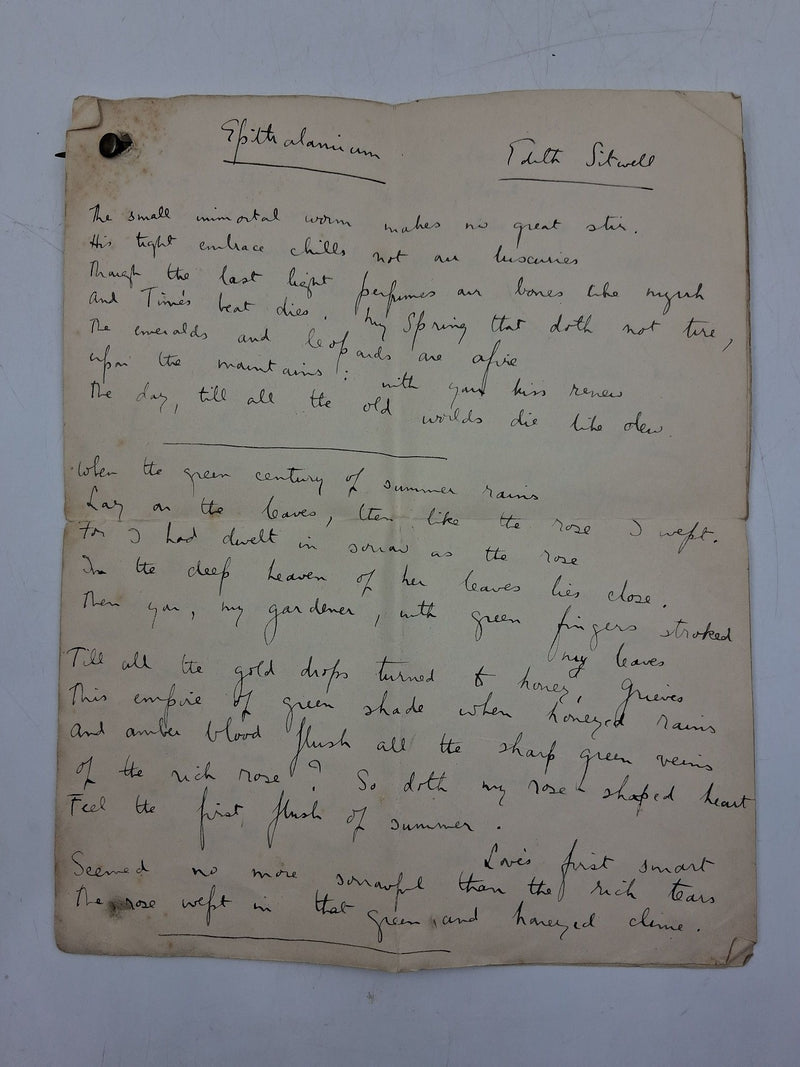 Epithalamium
Edith Sitwell
The small immortal worm makes no great stir.
His tight embrace chills not our luxuries
Though the last light perfumes our bones like myrrh
And Time's beat dies. My Spring that doth not tire,
The emeralds and leopards are afire
upon the mountains : with your kiss renew
The day, till all the old worlds die like dew.
When the green century of summer rains
Lay on the leaves, then like the rose I wept.
For I had dwelt in sorrow as the rose
In the deep heaven of her leaves lies close.
Then you, my gardener, with green fingers stroked
my leaves
Till all the gold drops turned to honey, Grieves
This empire of green shade when honeyed rains
And amber blood flush all the sharp green veins
of the rich rose? So doth my rose-shaped heart
Feel the first flush of summer.
Love's first smart
Seemed no more sorrowful than the rich tears
The rose wept in that green and honeyed clime.